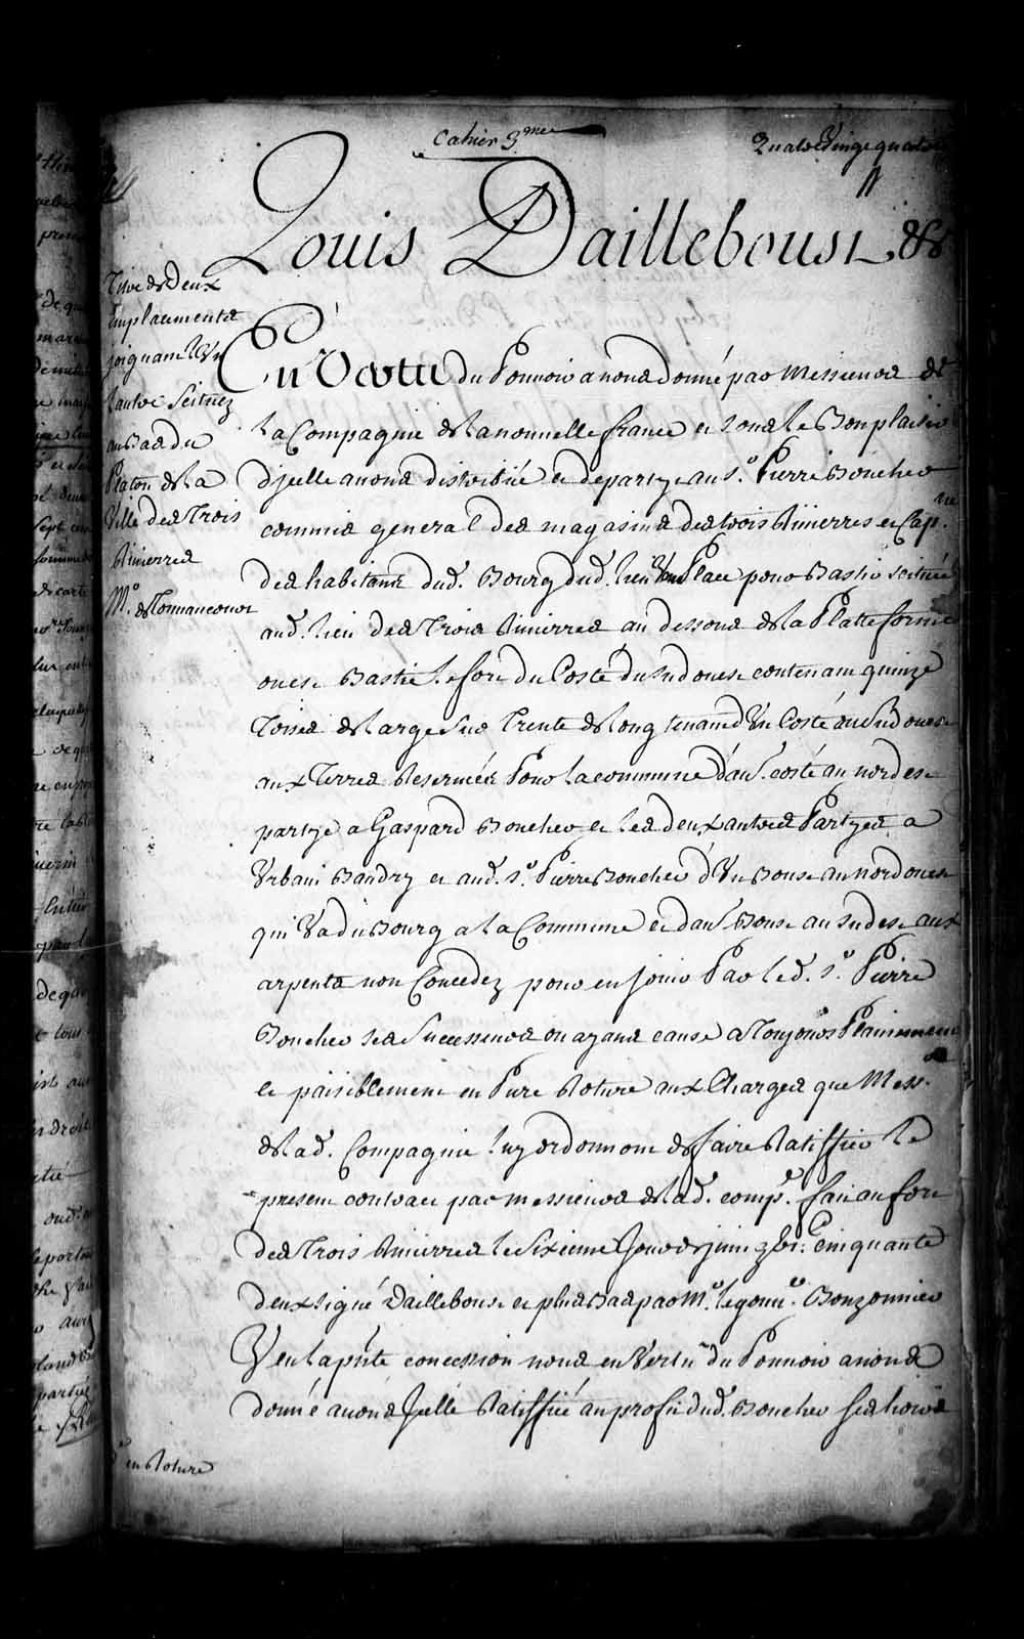 Cahier 3.me
Quatre Vingt quatorze
Louis Dailleboust &c
Titre de Deux
Emplacements
joignant L'Un
L'autre Scituez
au Bas du
Platon de La
Ville des Trois
Rivierres
M.r de Tonnancour
En Vertu du Pouvoir a nous donné par Messieurs de
La Compagnie de La nouvelle france et sous Le Bon plaisir
d'jcelle avons distribué et departy au S.r Pierre Boucher
commis general des magasins des trois Rivierres et Cap.ne
des habitans dud. Bourg dud. lieu Une Place pour Bastir scituée
aud. lieu des Trois Rivierres au dessous de La Platte forme
ou est Bastie Le fort du Costé du sud ouest contenant quinze
Toises de Large sur Trente de Long tenant d'Un Costé au sud ouest
aux Terres Reservéz Pour La commune d'aut. costé au nord est
partye a Gaspard Boucher et les deux autres Partyes a
Urbain Baudry et aud. S.r Pierre Boucher d'Un Bout au nord ouest
qui Va du Bourg a La Commune et d'aut. Bout au sud est aux
arpents non Concedez pour en Jouir Par Led. S.r Pierre
Boucher ses Successeurs ou ayans cause a Toujours Plainement
et paisiblement en Pure Roture aux Charges que Mess.rs
de Lad. Compagnie Luy ordonnont de faire Ratiffier Le
present contract par messieurs de Lad. comp.e fait au fort
des Trois Rivierres le Sixieme Jour de juin gbi.c Cinquante
deux signé Dailleboust et plus Bas par M.r Le gouv.r Bouzonnier
Veu La p̃nte concession nous en Vertu du Pouvoir a nous
donné avons Jcelle Ratiffiée au profit dud. Boucher ses hoirs
en Roture